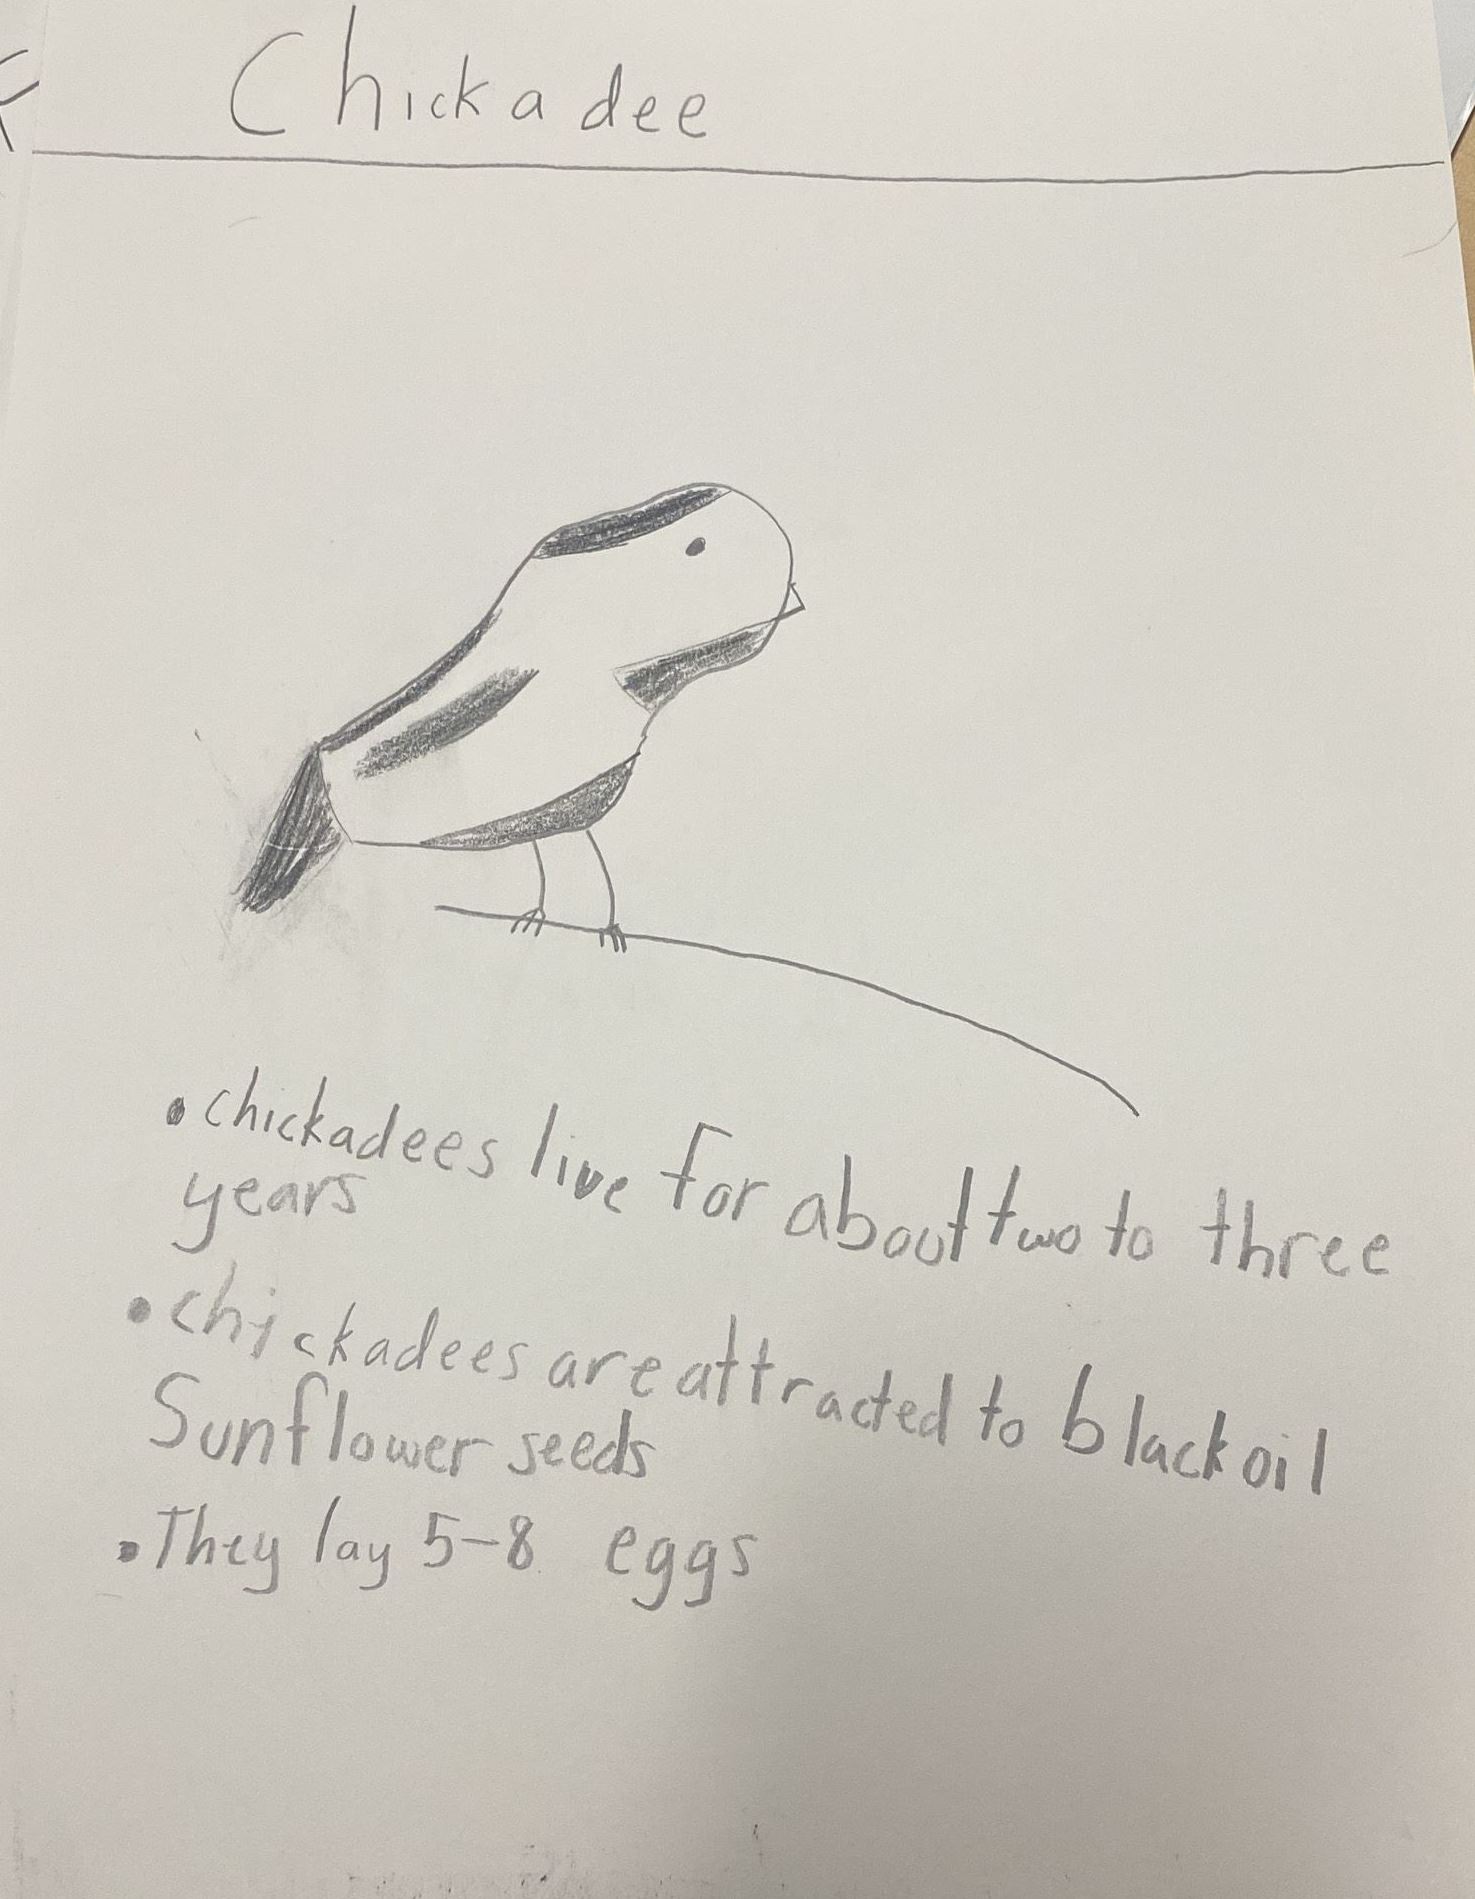 Chickadee
• chickadees live for about two to three
years
• chickadees are attracted to black oil
Sunflower seeds
• They lay 5-8 eggs